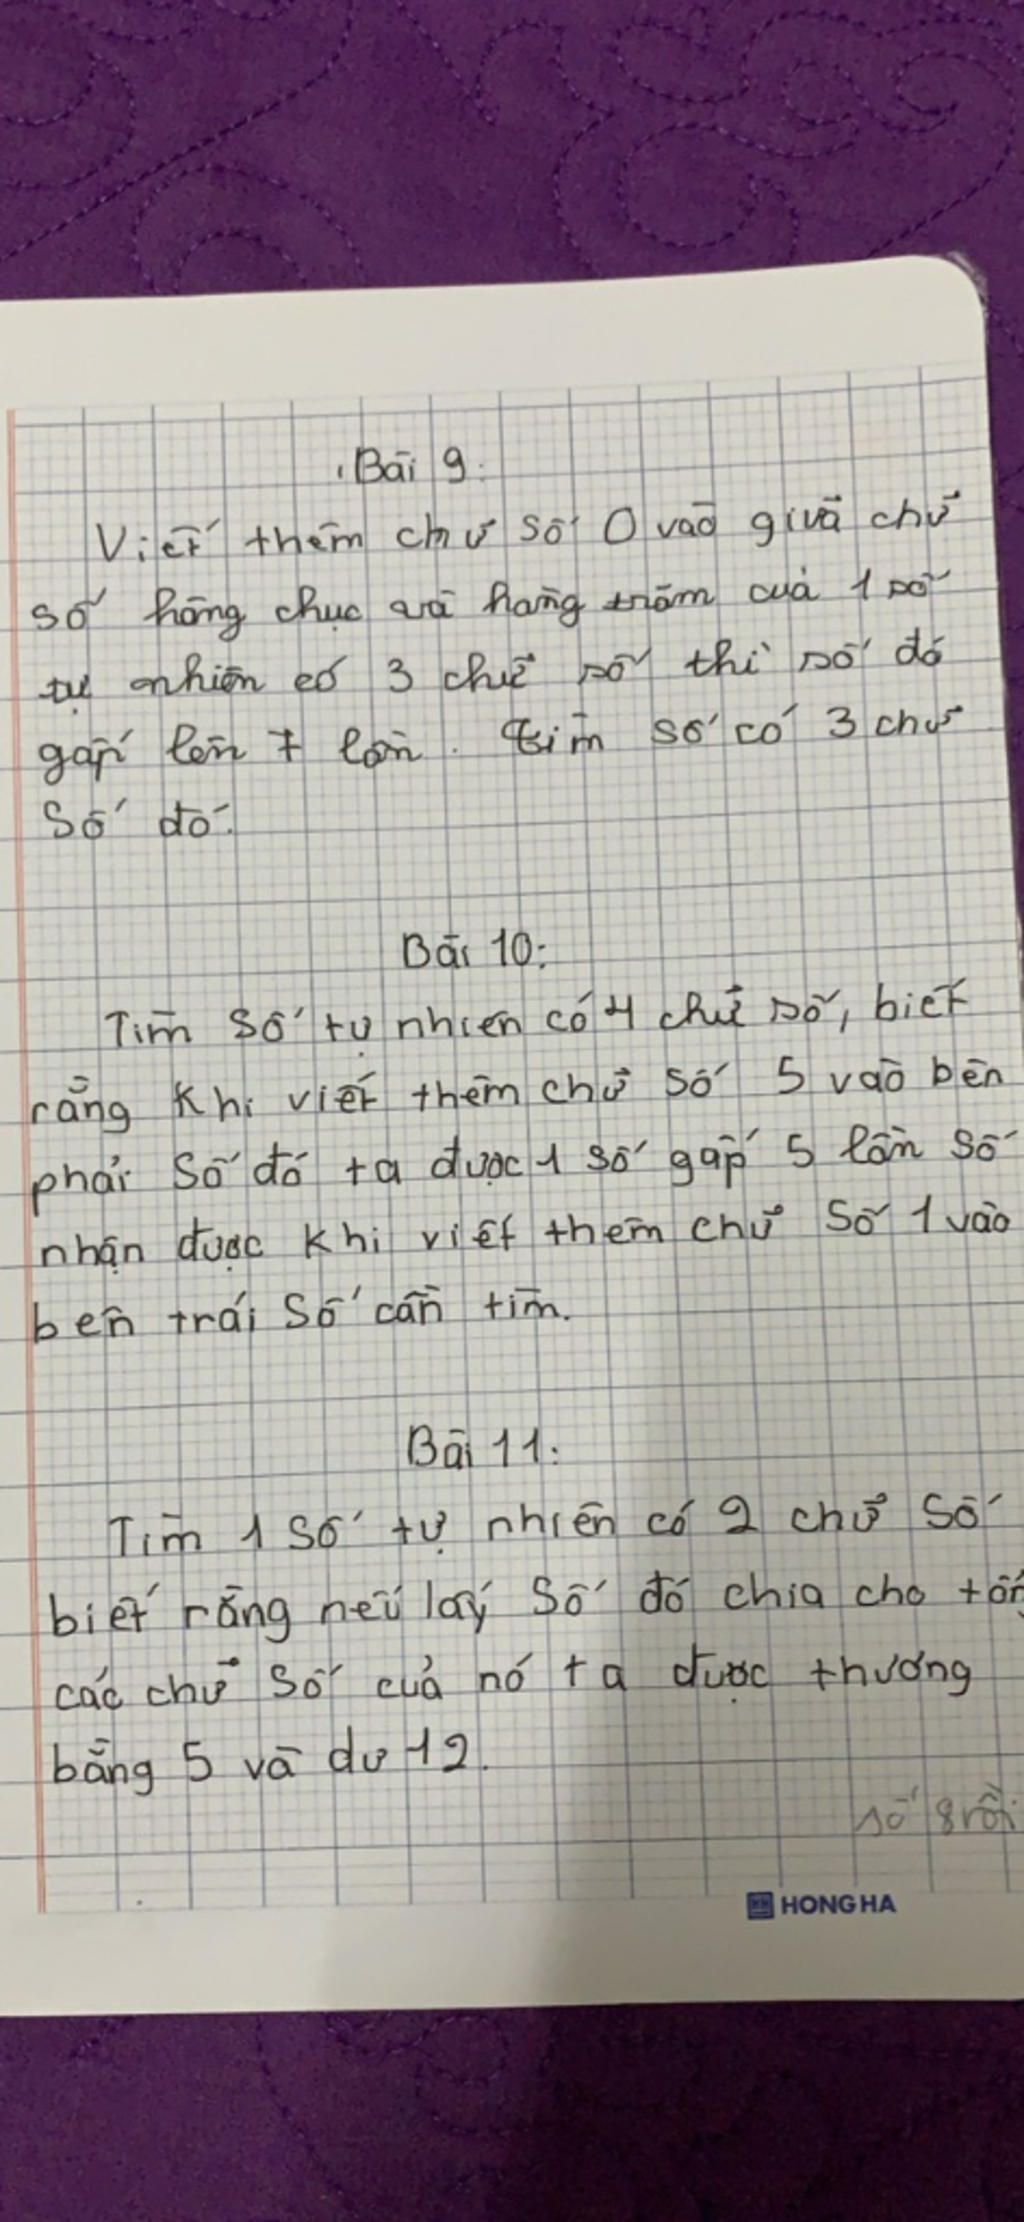 Bài 9:
Viết thêm chữ số 0 vào giữa chữ
số hàng chục và hàng trăm của 1 số
tự nhiên có 3 chữ số thì số đó
gấp lên 7 lần. tìm số có 3 chữ
số đó.
Bài 10:
Tìm số tự nhiên có 4 chữ số, biết
rằng khi viết thêm chữ số 5 vào bên
phải số đó ta được 1 số gấp 5 lần số
nhận được khi viết thêm chữ số 1 vào
bên trái số cần tìm.
Bài 11:
Tìm 1 số tự nhiên có 2 chữ số
biết rằng nếu lấy số đó chia cho
các chữ số của nó ta được thương
bằng 5 và dư 12.
số 8 rồi
HONG HA